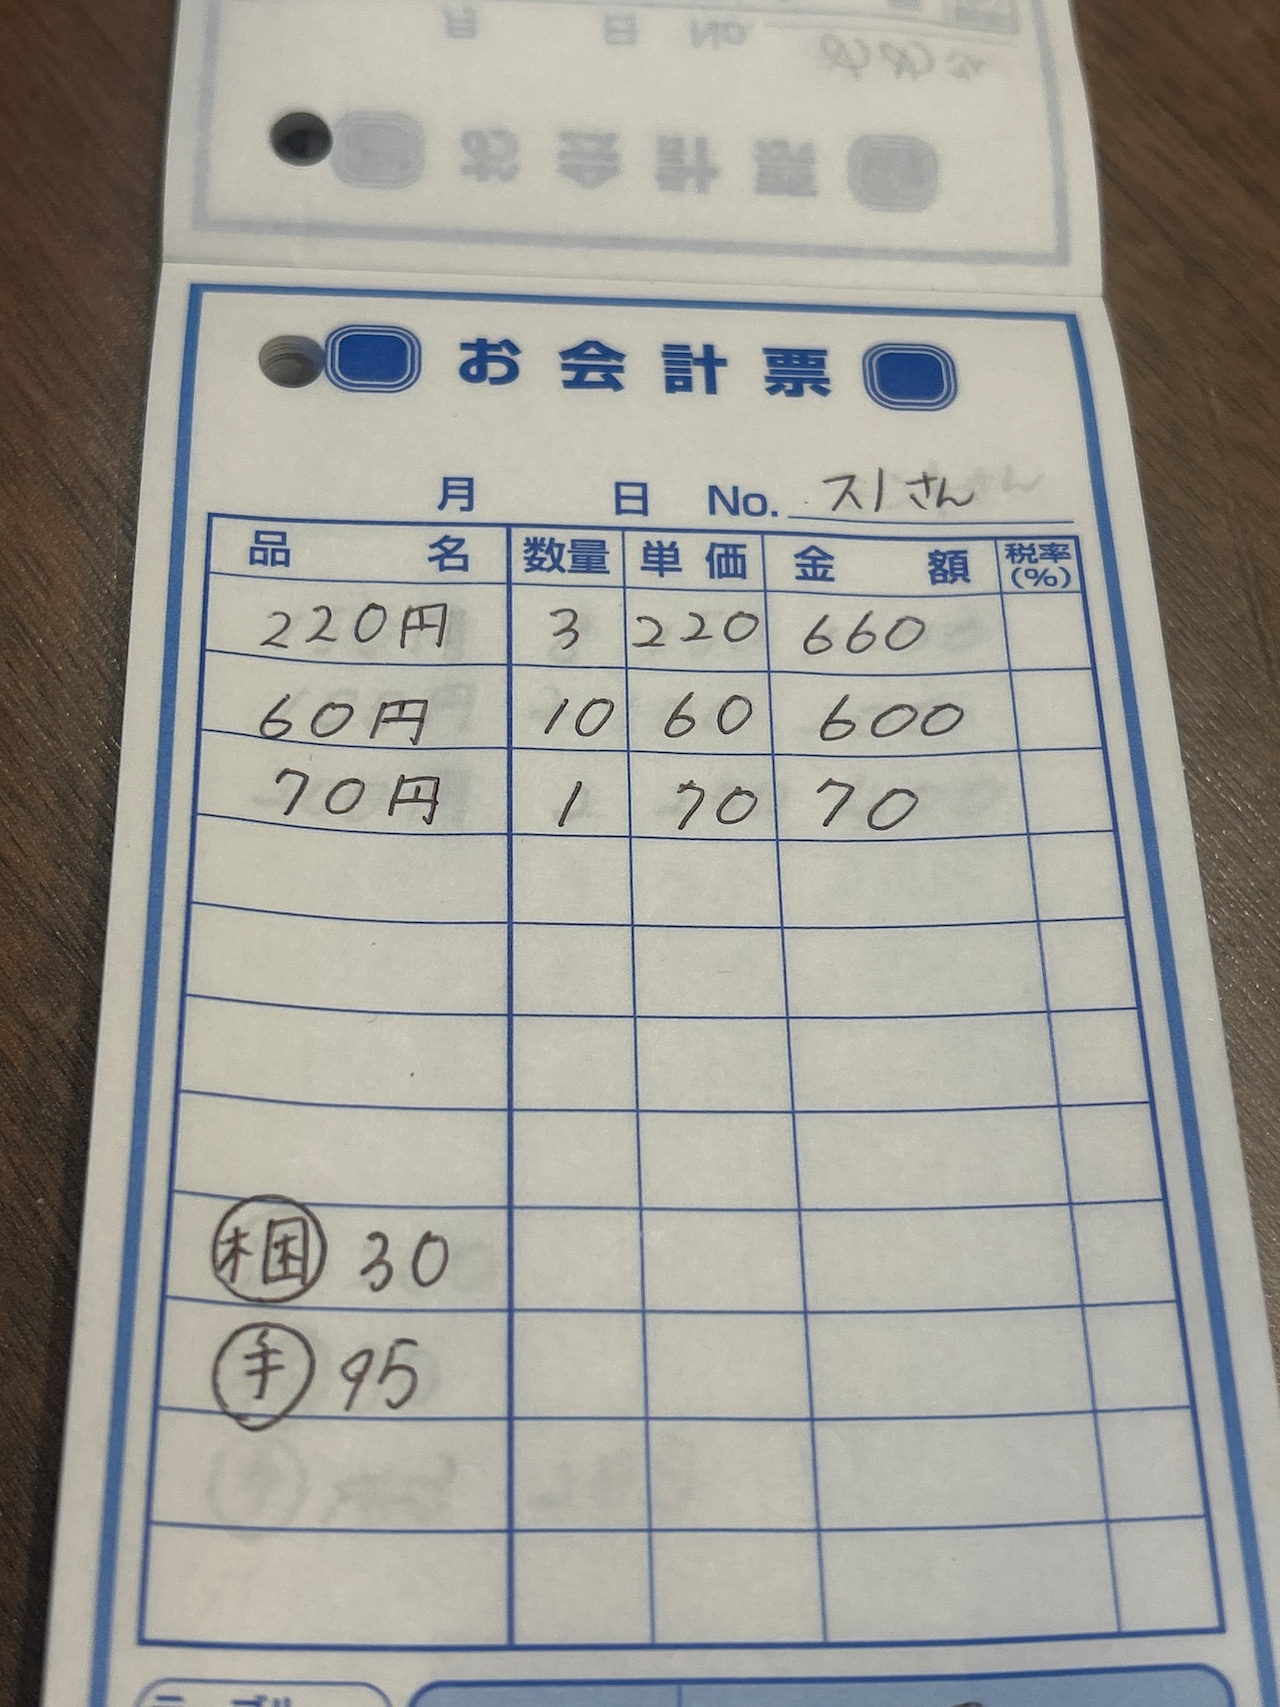 お会計票
月 日 No. スノさん
品名 数量 単価 金額 税率(%)
220円 3 220 660
60円 10 60 600
70円 1 70 70
梱 30
手 95